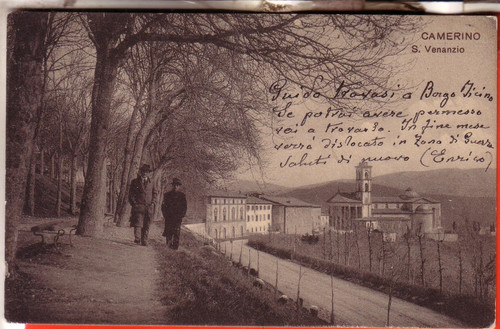 CAMERINO
S. Venanzio
Guido trovasi a Borgo Ticino
Se potrai avere permesso
vai a trovarlo. In fine mese
verrà dislocato in Zona di Guerra
Saluti di nuovo (Enrico)